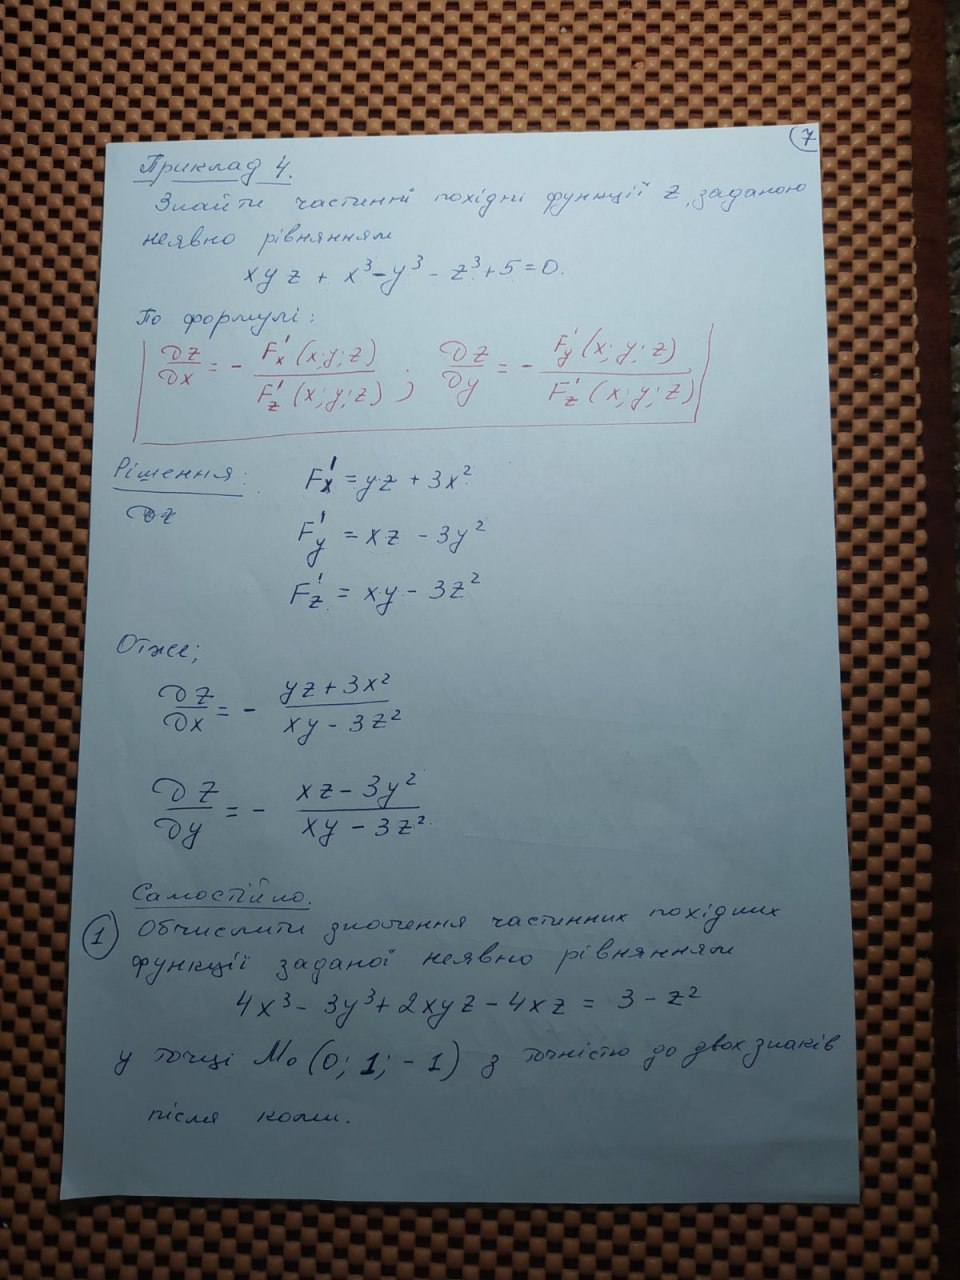 7
Приклад 4.
Знайти частинні похідні функції z, заданою
неявно рівнянням
xyz + x³ - y³ - z³ + 5 = 0.
По формулі:
∂z/∂x = - F'x (x; y; z) / F'z (x; y; z) ; ∂z/∂y = - F'y (x; y; z) / F'z (x; y; z)
Рішення:
F'x = yz + 3x²
∂z
F'y = xz - 3y²
F'z = xy - 3z²
Отже;
∂z/∂x = - yz + 3x² / xy - 3z²
∂z/∂y = - xz - 3y² / xy - 3z².
Самостійно.
1 Обчислити значення частинних похідних
функції заданої неявно рівнянням
4x³ - 3y³ + 2xyz - 4xz = 3 - z²
у точці M₀ (0; 1; -1) з точністю до двох знаків
після коми.